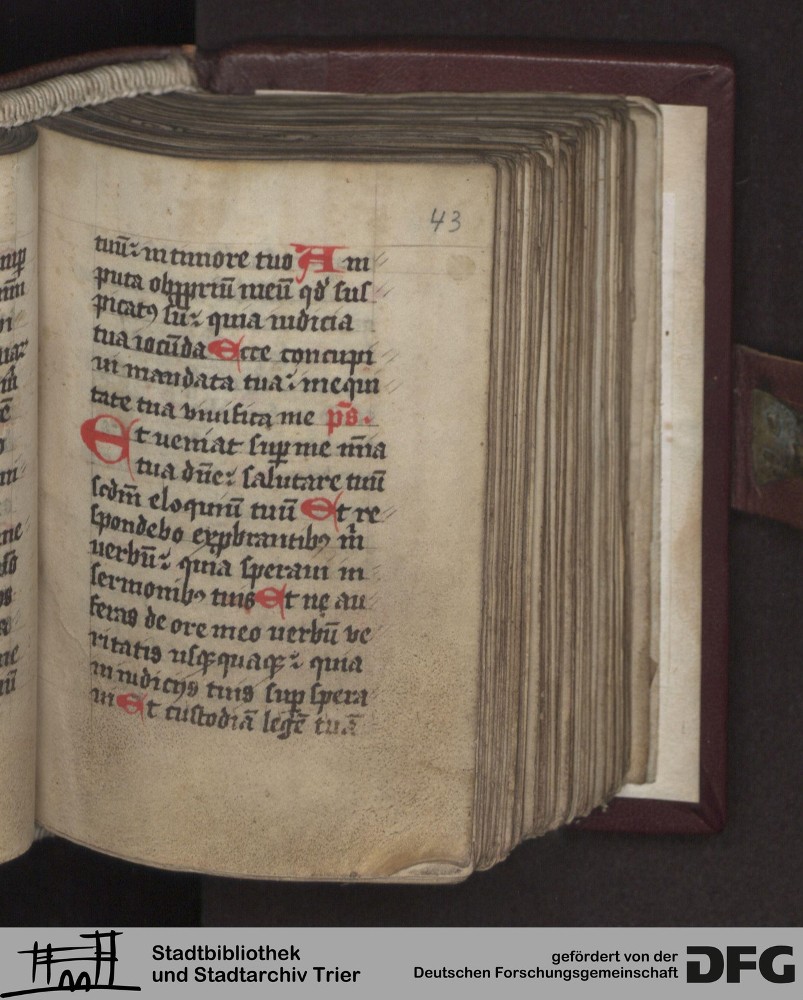 43
tuū: in timore tuo Am
puta obpp̄riū meū qd' sus
picatꝰ sū: quia iudicia
tua iocūda Ecce concupi
ui mandata tua: in equi
tate tua viuifica me ps̄.
Et ueniat sup me mīa
tua dn̄e: salutare tuū
scdm̄ eloquiū tuū Et re
spondebo exp̱brantibꝫ m̄
uerbū: quia speraui in
sermonibꝫ tuis Et ne au
feras de ore meo uerbū ve
ritatis usqꝫquaqꝫ: quia
in iudicijs tuis sup spera
ui Et custodiā legē tuā
Stadtbibliothek
und Stadtarchiv Trier
gefördert von der
Deutschen Forschungsgemeinschaft
DFG